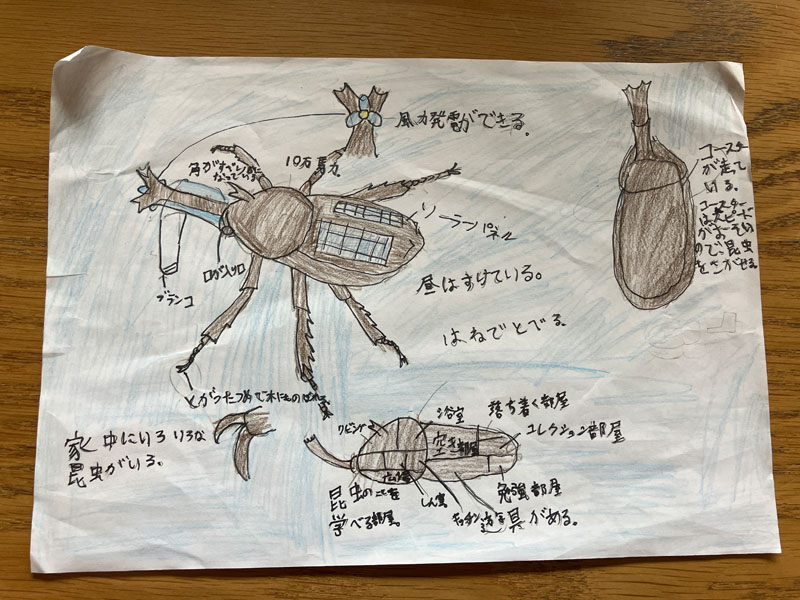 風力発電ができる。
角がすべり台に
なっている。
10万馬力
ソーラーパネル
口が入り口
ブランコ
昼はすけている。
はねでとべる。
とがったつめで木にものぼれる
コースター
が走って
いる。
コースター
はスピード
がおそい
ので、昆虫
をさがせる。
家中にいろいろな
昆虫がいる。
リビング
浴室
落ち着く部屋
空き部屋
コレクション部屋
昆虫のことを
学べる部屋。
しん室
キッチン
道具がある。
勉強部屋